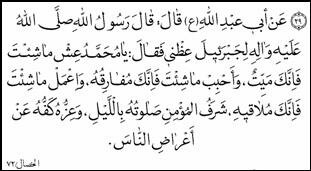 ٢٩ عَنْ أَبِي عَبْدِ اللّٰهِ (ع) قَالَ، قَالَ رَسُولُ اللّٰهِ صَلَّى اللّٰهُ
عَلَيْهِ وَالِهِ لِجَبْرَئِيلَ عِظْنِي فَقَالَ: يَا مُحَمَّدُ عِشْ مَا شِئْتَ
فَإِنَّكَ مَيِّتٌ، وَأَحْبِبْ مَا شِئْتَ فَإِنَّكَ مُفَارِقُهُ، وَاعْمَلْ مَا شِئْتَ
فَإِنَّكَ مُلَاقِيهِ، شَرَفُ الْمُؤْمِنِ صَلَوتُهُ بِاللَّيْلِ، وَعِزُّهُ كَفُّهُ عَنْ
أَعْرَاضِ النَّاسِ.
الخصال ٧٢